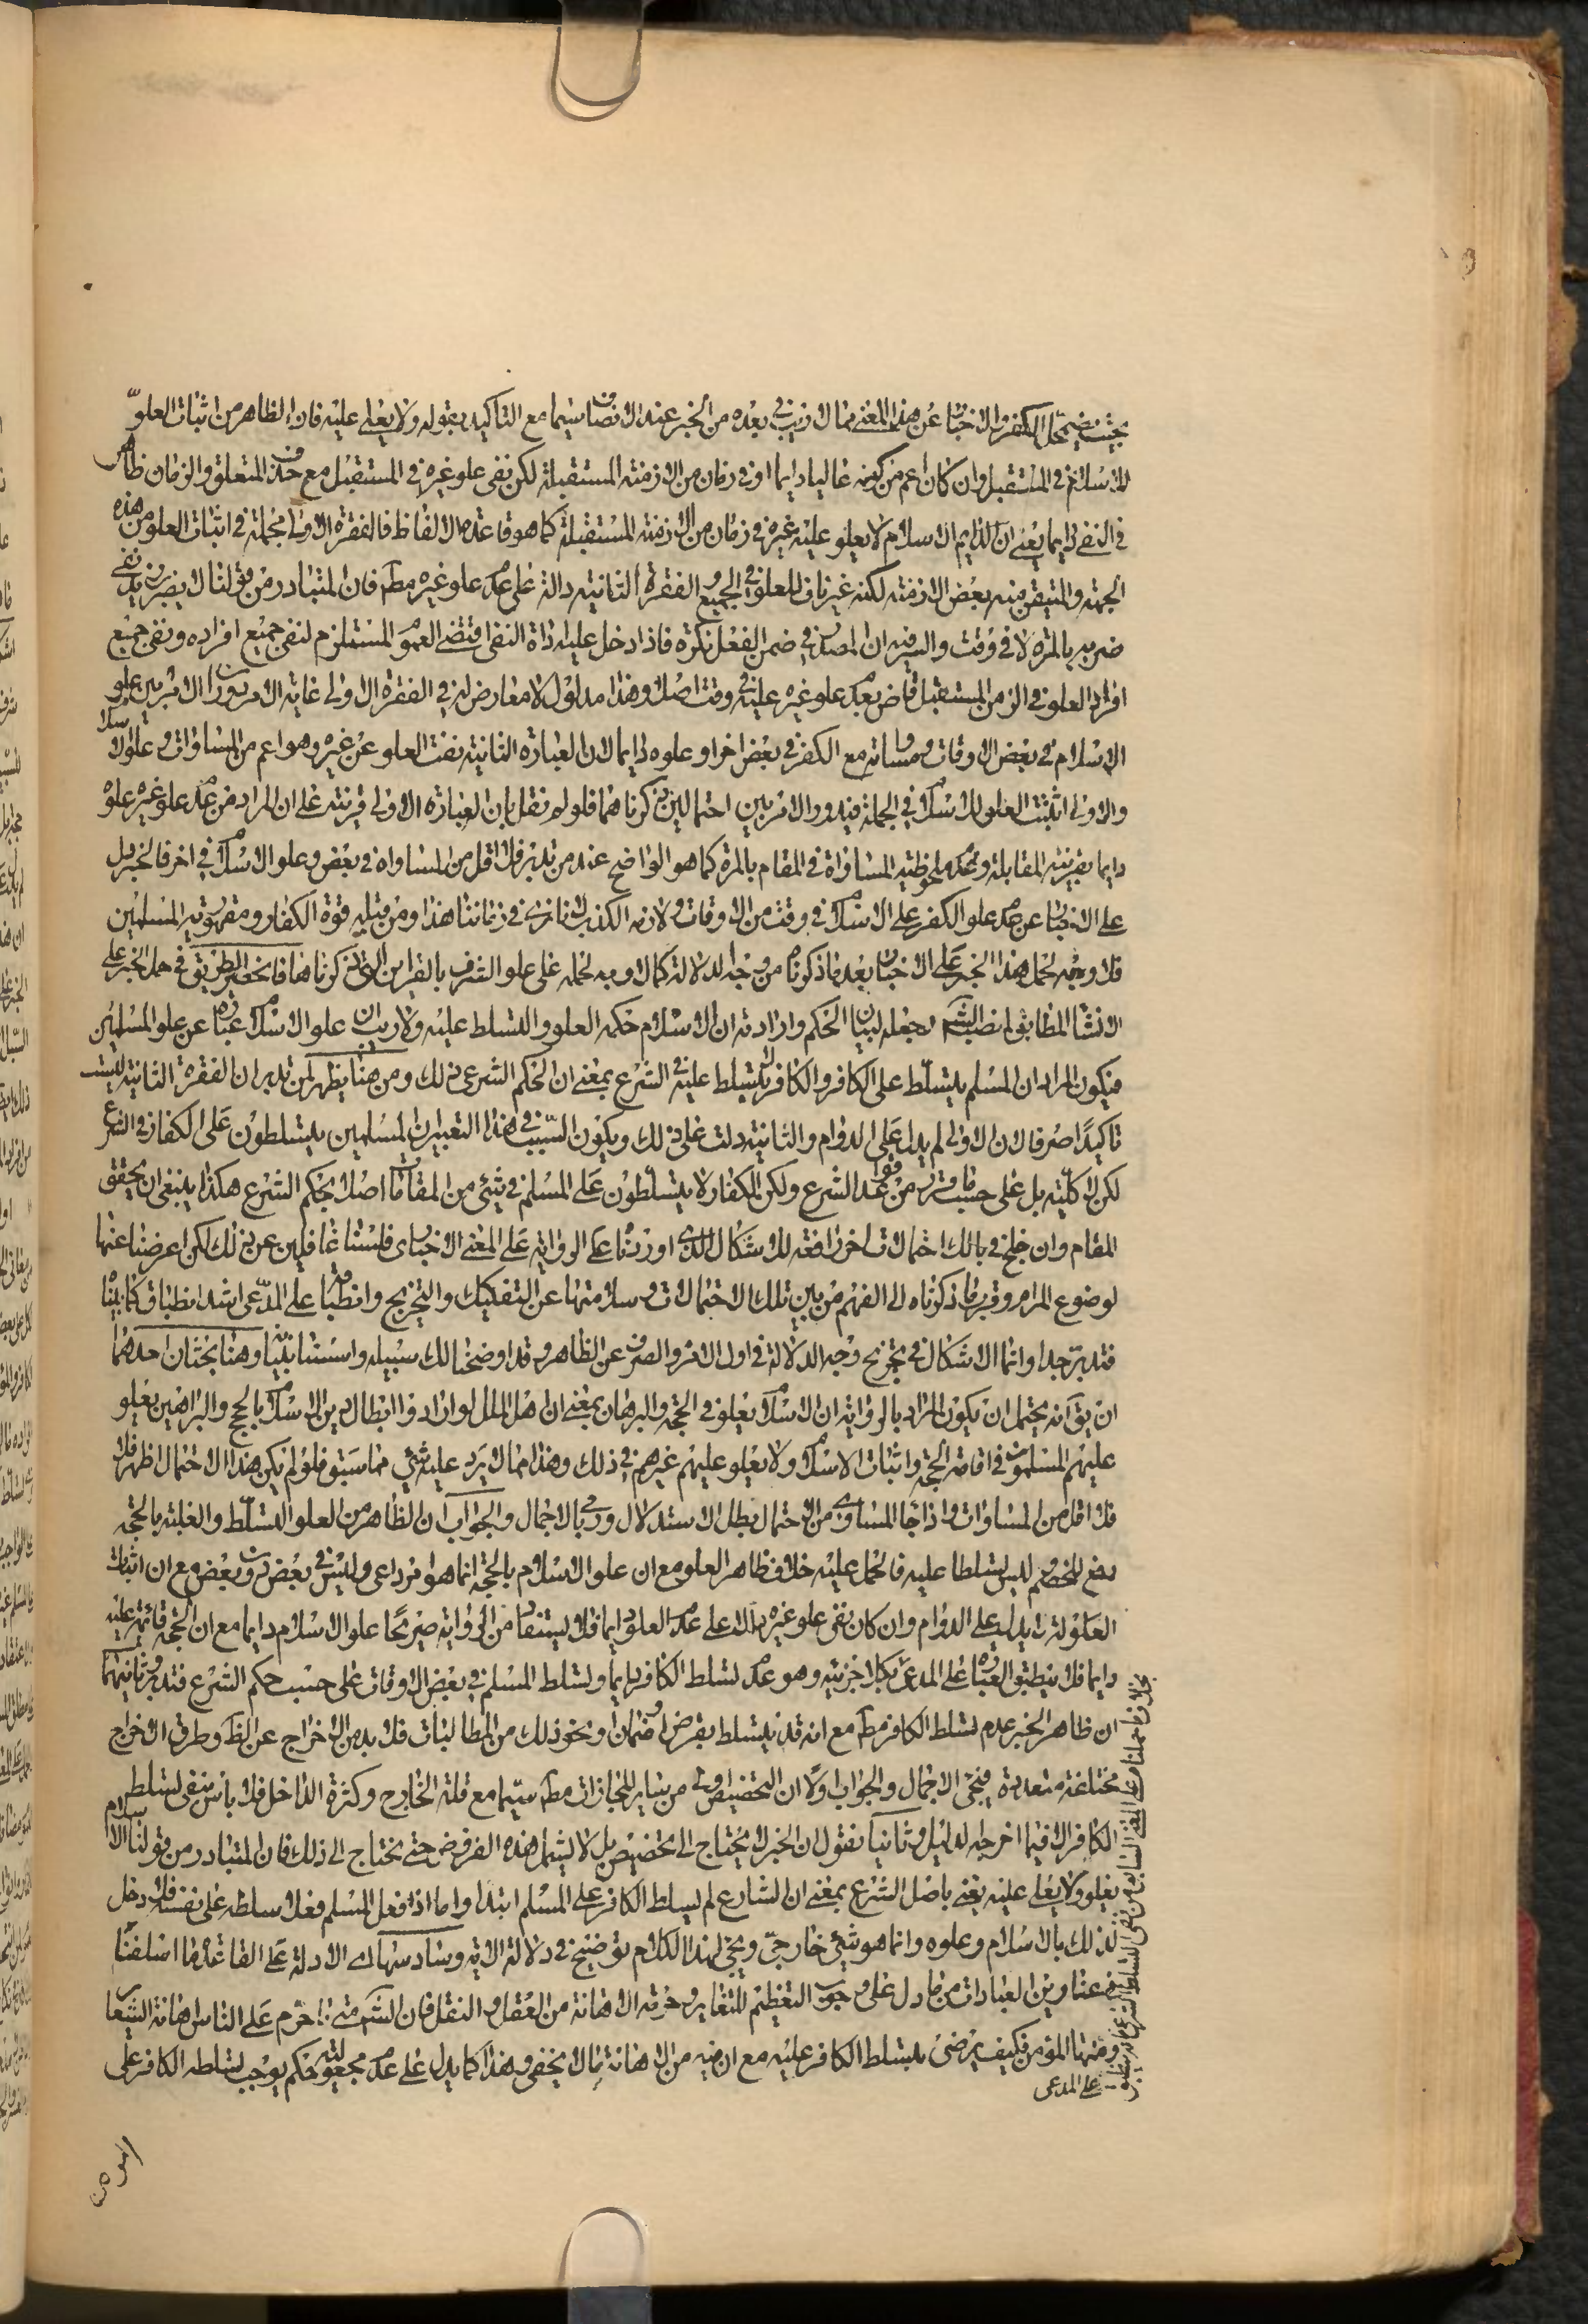 بحيث يضمحل الكفر والاخبار عن هذا المعنى مما لا ريب في بعده من الخبر عند الانصاف سيما مع التاكيد بقوله ولا يعلى عليه فان الظاهر من اثبات العلوّ
للاسلام في المستقبل وان كان اعم من كونه غالبا دايما او في زمان من الازمنة المستقبلة لكن نفى علو غيره في المستقبل مع حذف المتعلق والزمان ظاهر
في النفى دايما يعنى ان الدايم الاسلام لا يعلو عليه غيره في زمان من الازمنة المستقبلة كما هو قاعدة الالفاظ فالفقرة الاولى مجملة في اثبات العلو من هذه
الجهة والمتيقن منه بعض الازمنة لكنه غير ناف للعلو في الجميع والفقرة الثانية دالة على عدم علو غيره مطم فان المتبادر من قولنا لا يضرب زيد نفى
ضربه بالمرة لا في وقت والسر فيه ان المصدر في ضمن الفعل نكرة فاذا دخل عليه اداة النفى اقتضى العموم المستلزم لنفى جميع افراده ونفى جميع
افراد العلو في الزمن المستقبل قاض بعدم علو غيره عليه في وقت اصلا وهذا مدلول لا معارض له في الفقرة الاولى غاية الامر دوران الامر بين علو
الاسلام في بعض الاوقات ومساواته مع الكفر في بعض اخر او علوه دايما لان العبارة الثانية نفت العلو عن غيره وهو اعم من المساوات وعلو الاسلام
والاولى اثبتت العلو للاسلام في الجملة فيدور الامر بين احتمالين ذكرناهما فلو لم نقل بان العبارة الاولى قرينة على ان المراد من عدم علو غيره علوه
دايما بقرينة المقابلة وعدم ملحوظية المساواة في المقام بالمرة كما هو الواضح عند من تدبر فلا اقل من المساواه في بعض وعلو الاسلام في اخر فالخبر يدل
على الاخبار عن عدم علو الكفر على الاسلام في وقت من الاوقات ولازمه الكذب لما نرى في زماننا هذا ومن قبله قوة الكفار ومقهورية المسلمين
فلا وجه لحمل هذا الخبر على الاخبار بعد ما ذكرناه من وجه الدلالة كما لا وجه لحمله على علو الشرف بالقراين التي ذكرناها فانحصر الطريق في حمل الخبر على
الانشاء المطابق لمنصب الشارع بجعله لبيان الحكم وارادة ان الاسلام حكمه العلو والتسلط عليه ولا ريب ان علو الاسلام عبارة عن علو المسلمين
فيكون المراد ان المسلم يتسلّط على الكافر والكافر لا يتسلط عليه في الشرع بمعنى ان الحكم الشرعى ذلك ومن هنا يظهر لمن تدبر ان الفقرة الثانية ليست
تاكيدًا صرفا لان الاولى لم يدل على الدوام والثانية دلت على ذلك ويكون السّبب في هذا التعبير ان المسلمين يتسلطون على الكفار في الشرع
لكن لا كلّية بل على حسب ما قرر من قواعد الشرع ولكن الكفار لا يتسلّطون على المسلم في شئ من المقامات اصلا بحكم الشرع هكذا ينبغى ان يحقق
المقام وان خلج في بالك احتمالات اخر رافعة للاشكال الذي اوردنا على الرواية على المعنى الاخبارى فلسنا غافلين عن ذلك لكن اعرضنا عنها
لوضوح المرام وقرب ما ذكرناه الى الفهم من بين تلك الاحتمالات وسلامتها عن التفكيك والتخريج وانطباقه على المدّعى اشد انطباق كما بيناه
فتدبر جدا وانما الاشكال في تخريج وجه الدلالة في اول الامر والصرف عن الظاهر وقد اوضحنا لك سبيله واسسنا بنيانه وهنا بحثان احدهما
ان يق انه يحتمل ان يكون المراد بالرواية ان الاسلام يعلو في الحجة والبرهان بمعنى ان اهل الملل لو ارادوا ابطال دين الاسلام بالحجج والبراهين يعلو
عليهم المسلمون في اقامة الحجة واثبات الاسلام ولا يعلو عليهم غيرهم في ذلك وهذا مما لا يرد عليه شئ مما سبق فلو لم يكن هذا الاحتمال اظهر فلا
فلا اقل من المساوات واذا جاء المساوى من الاحتمال بطل الاستدلال ورمى بالاجمال والجواب ان الظاهر من العلو التسلّط والغلبة بالحجة
دفع للخصم ليس تسلطا عليه فالحمل عليه خلاف ظاهر العلو مع ان علو الاسلام بالحجة انما هو امر داعى وليس في بعض دون بعض مع ان اثبات
العلو له لا يدل على الدوام وان كان نفى علو غيره يدل على عدم العلو دايما فلا يستفاد من الرواية صريحًا علو الاسلام دايما مع ان الحجة قائمة عليه
دايما فلا ينطبق العبارة على المدعى بكلا جزئيه وهو عدم تسلط الكافر دايما وتسلط المسلم في بعض الاوقات على حسب حكم الشرع فتدبر وثانيهما
ان ظاهر الخبر عدم تسلط الكافر مطم مع انه قد يتسلط بقرض او ضمان او نحو ذلك من المطالبات فلا بد من الاخراج عن الظ وطرق الاخراج
مختلفة متعددة فيجئ الاجمال والجواب اولا ان التخصيص اولى من ساير المجازات مطم سيّما مع قلة الخارج وكثرة الداخل فلا باس بنفى تسلط
الكافر الا فيما اخرجه الدليل وثانيا نقول ان الخبر لا يحتاج الى تخصيص بل لا يشمل هذه الفروض حتى يحتاج الى ذلك فان المتبادر من قولنا الاسلام
يعلو ولا يعلى عليه يعنى باصل الشرع بمعنى ان الشارع لم يسلط الكافر على المسلم ابتدا واما اذا فعل المسلم فعلا سلطه على نفسه فلا دخل
لذلك بالاسلام وعلوه وانما هو شئ خارجىّ ويجئ لهذا الكلام توضيح في دلالة الاية وسادسها اى الادلة على القاعدة ما اسلفنا
في عناوين العبادات من ما دل على وجوب التعظيم للشعاير وحرمة الاهانة من العقل والنقل فان الشارع متى حرم على الناس اهانة الشعاير
ومنها المؤمن فكيف يرضى بتسلط الكافر عليه مع ان فيه من الاهانة ما لا يخفى وهذا كما يدل على عدم مجعولية حكم يوجب تسلطه الكافر على
على المعنى السابق من نفى التسلط الشرعى فانه ينطبق
على المدعى